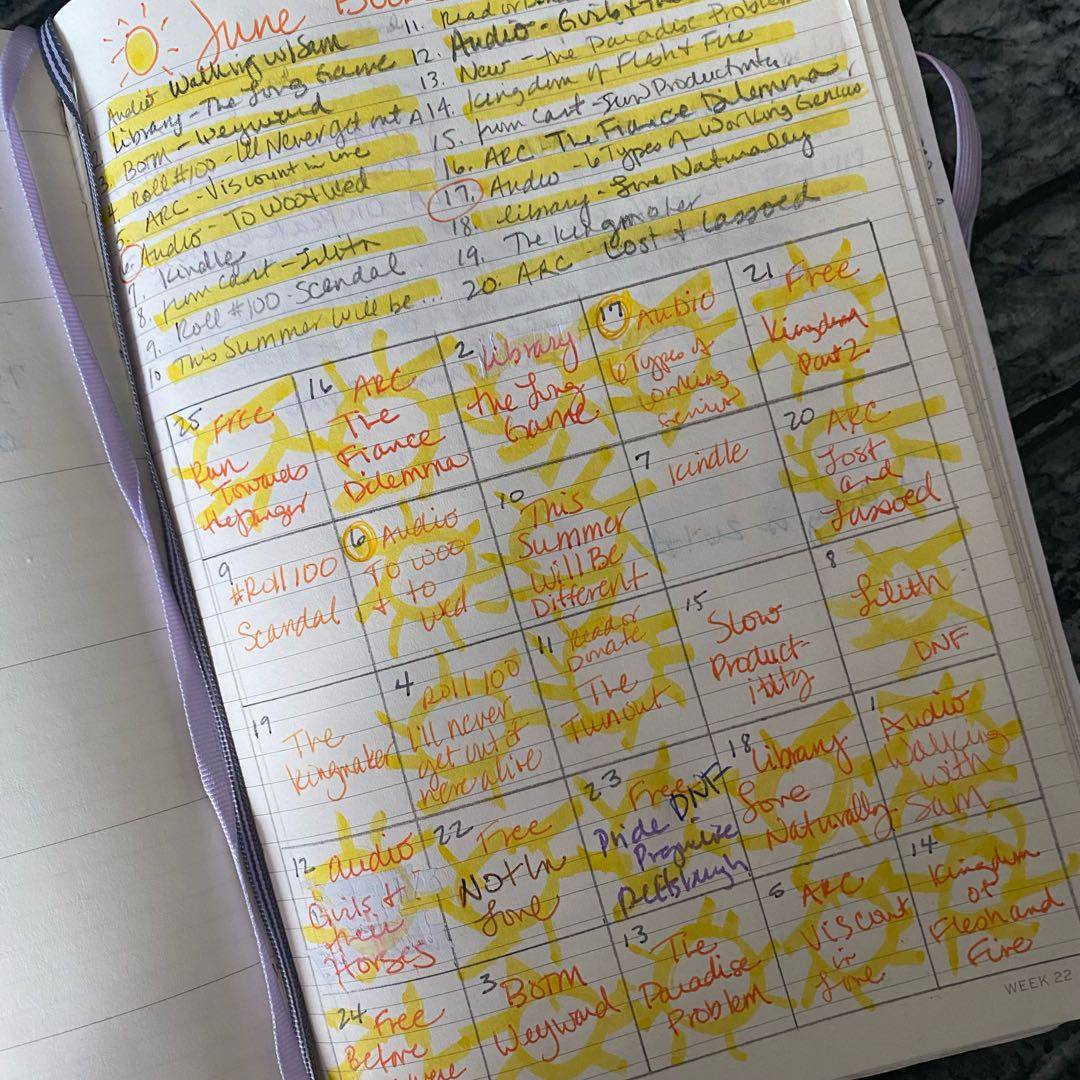 June
Audio Walking w/Sam
Library - The Long Game
BOTM - Weyward
4 Roll #100 - I'll Never get out A
ARC - Viscount in Love
Audio - To Woo + Wed
Kindle
8. Lilith
9. Roll #100 - Scandal
10 This Summer will be ...
11. Read or
12. Audio - Girls + the
13. New - the Paradise Problem
14. Kingdom of Flesh + Fire
15. Slow Productivity
16. ARC - The Fiance Dilemma
17. Audio - 6 Types of Working Genius
18. Library - Love Naturally
19. The Kingmaker
20. ARC - Lost + Lassoed
25 Free
Run
Towards
the Danger
16 ARC
The
Fiance
Dilemma
2 Library
the Long
Game
17 Audio
6 Types of
working
genius
21 Free
Kingdom
Part 2
9
#Roll 100
Scandal
6 Audio
To woo
+ to
wed
10
This
Summer
Will Be
Different
7 Kindle
20 ARC
Lost
and
Lassoed
19
The
Kingmaker
4 Roll 100
I'll never
get out of
here alive
11 Read or
Donate
The
Turnout
15
Slow
Product-
itity
8
Lilith
DNF
12 Audio
Girls +
their
Horses
22 Free
Not In
Love
23 Free
DNF
Pride
Prejudice
Pittsburgh
18 Library
Love
Naturally
1 Audio
Walking
with
Sam
24 Free
Before
were
3 BOTM
Weyward
13
The
Paradise
Problem
5 ARC
Viscount
in
Love
14
Kingdom
of
Flesh and
Fire
WEEK 22